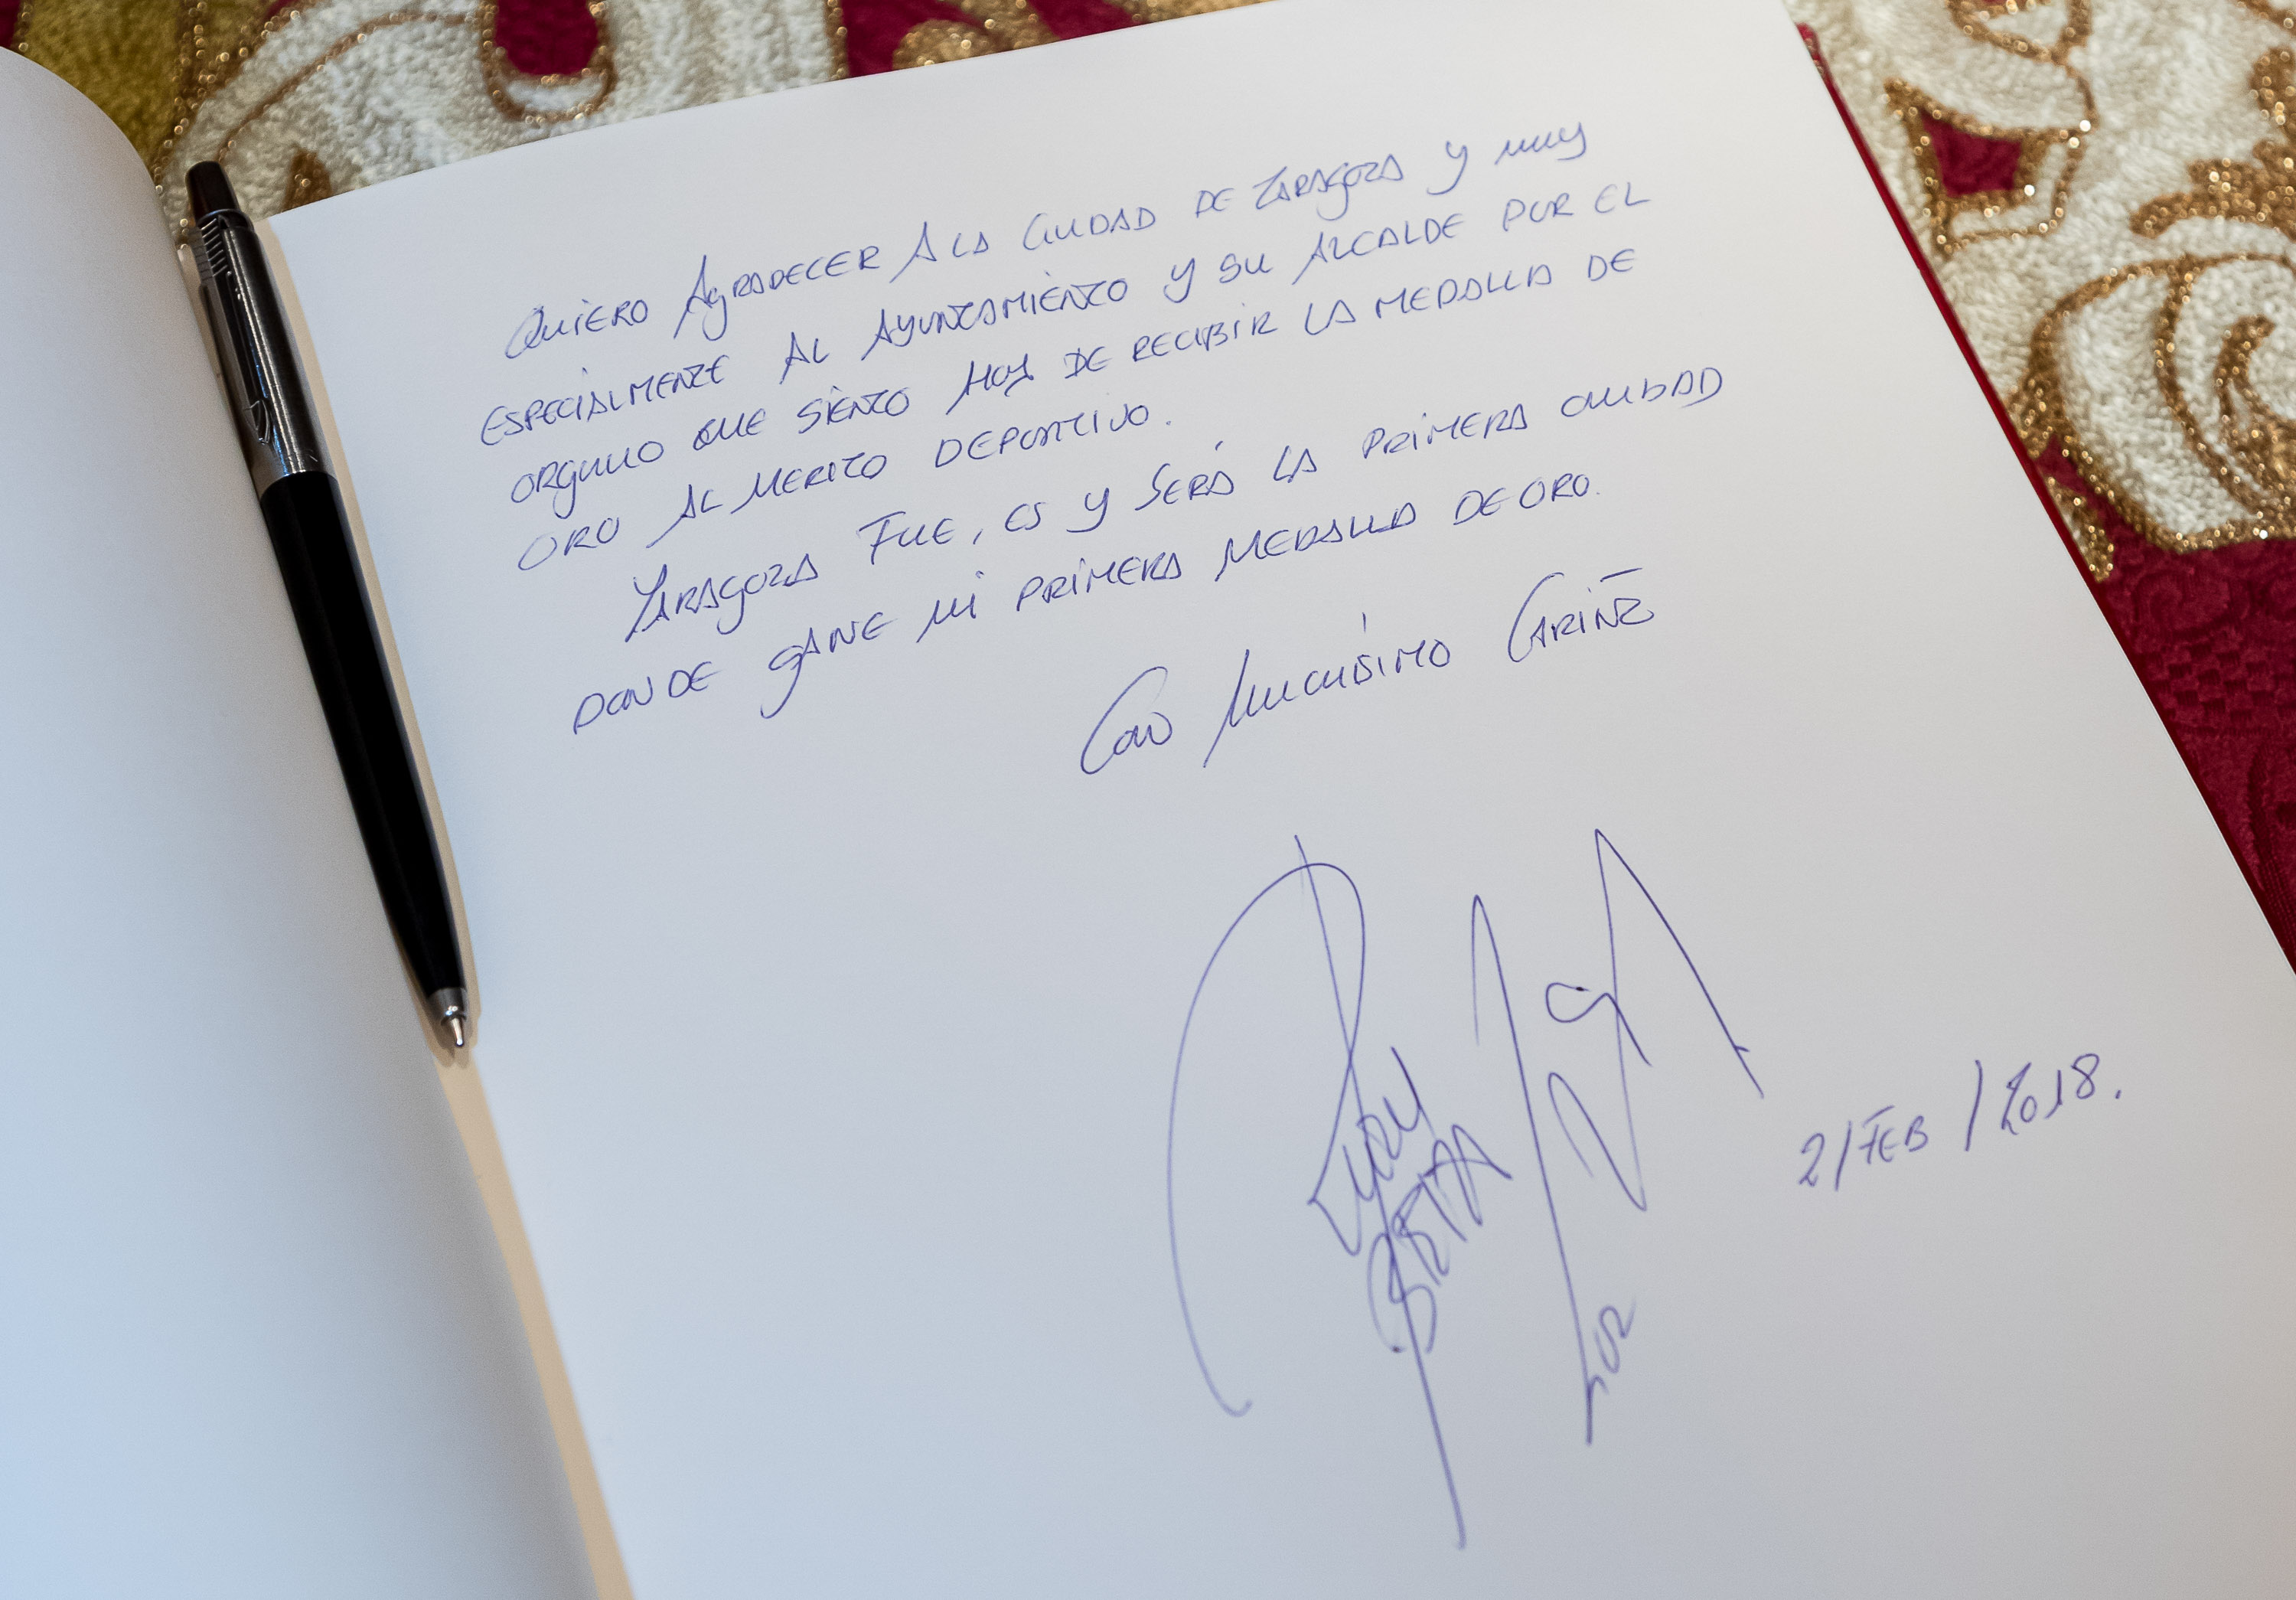 QUIERO AGRADECER A LA CIUDAD DE ZARAGOZA Y MUY
ESPECIALMENTE AL AYUNTAMIENTO Y SU ALCALDE POR EL
ORGULLO QUE SIENTO HOY DE RECIBIR LA MEDALLA DE
ORO AL MERITO DEPORTIVO.
ZARAGOZA FUE, ES Y SERÁ LA PRIMERA CIUDAD
DONDE GANE MI PRIMERA MEDALLA DE ORO.
CON MUCHÍSIMO CARIÑO
2/FEB/2018.